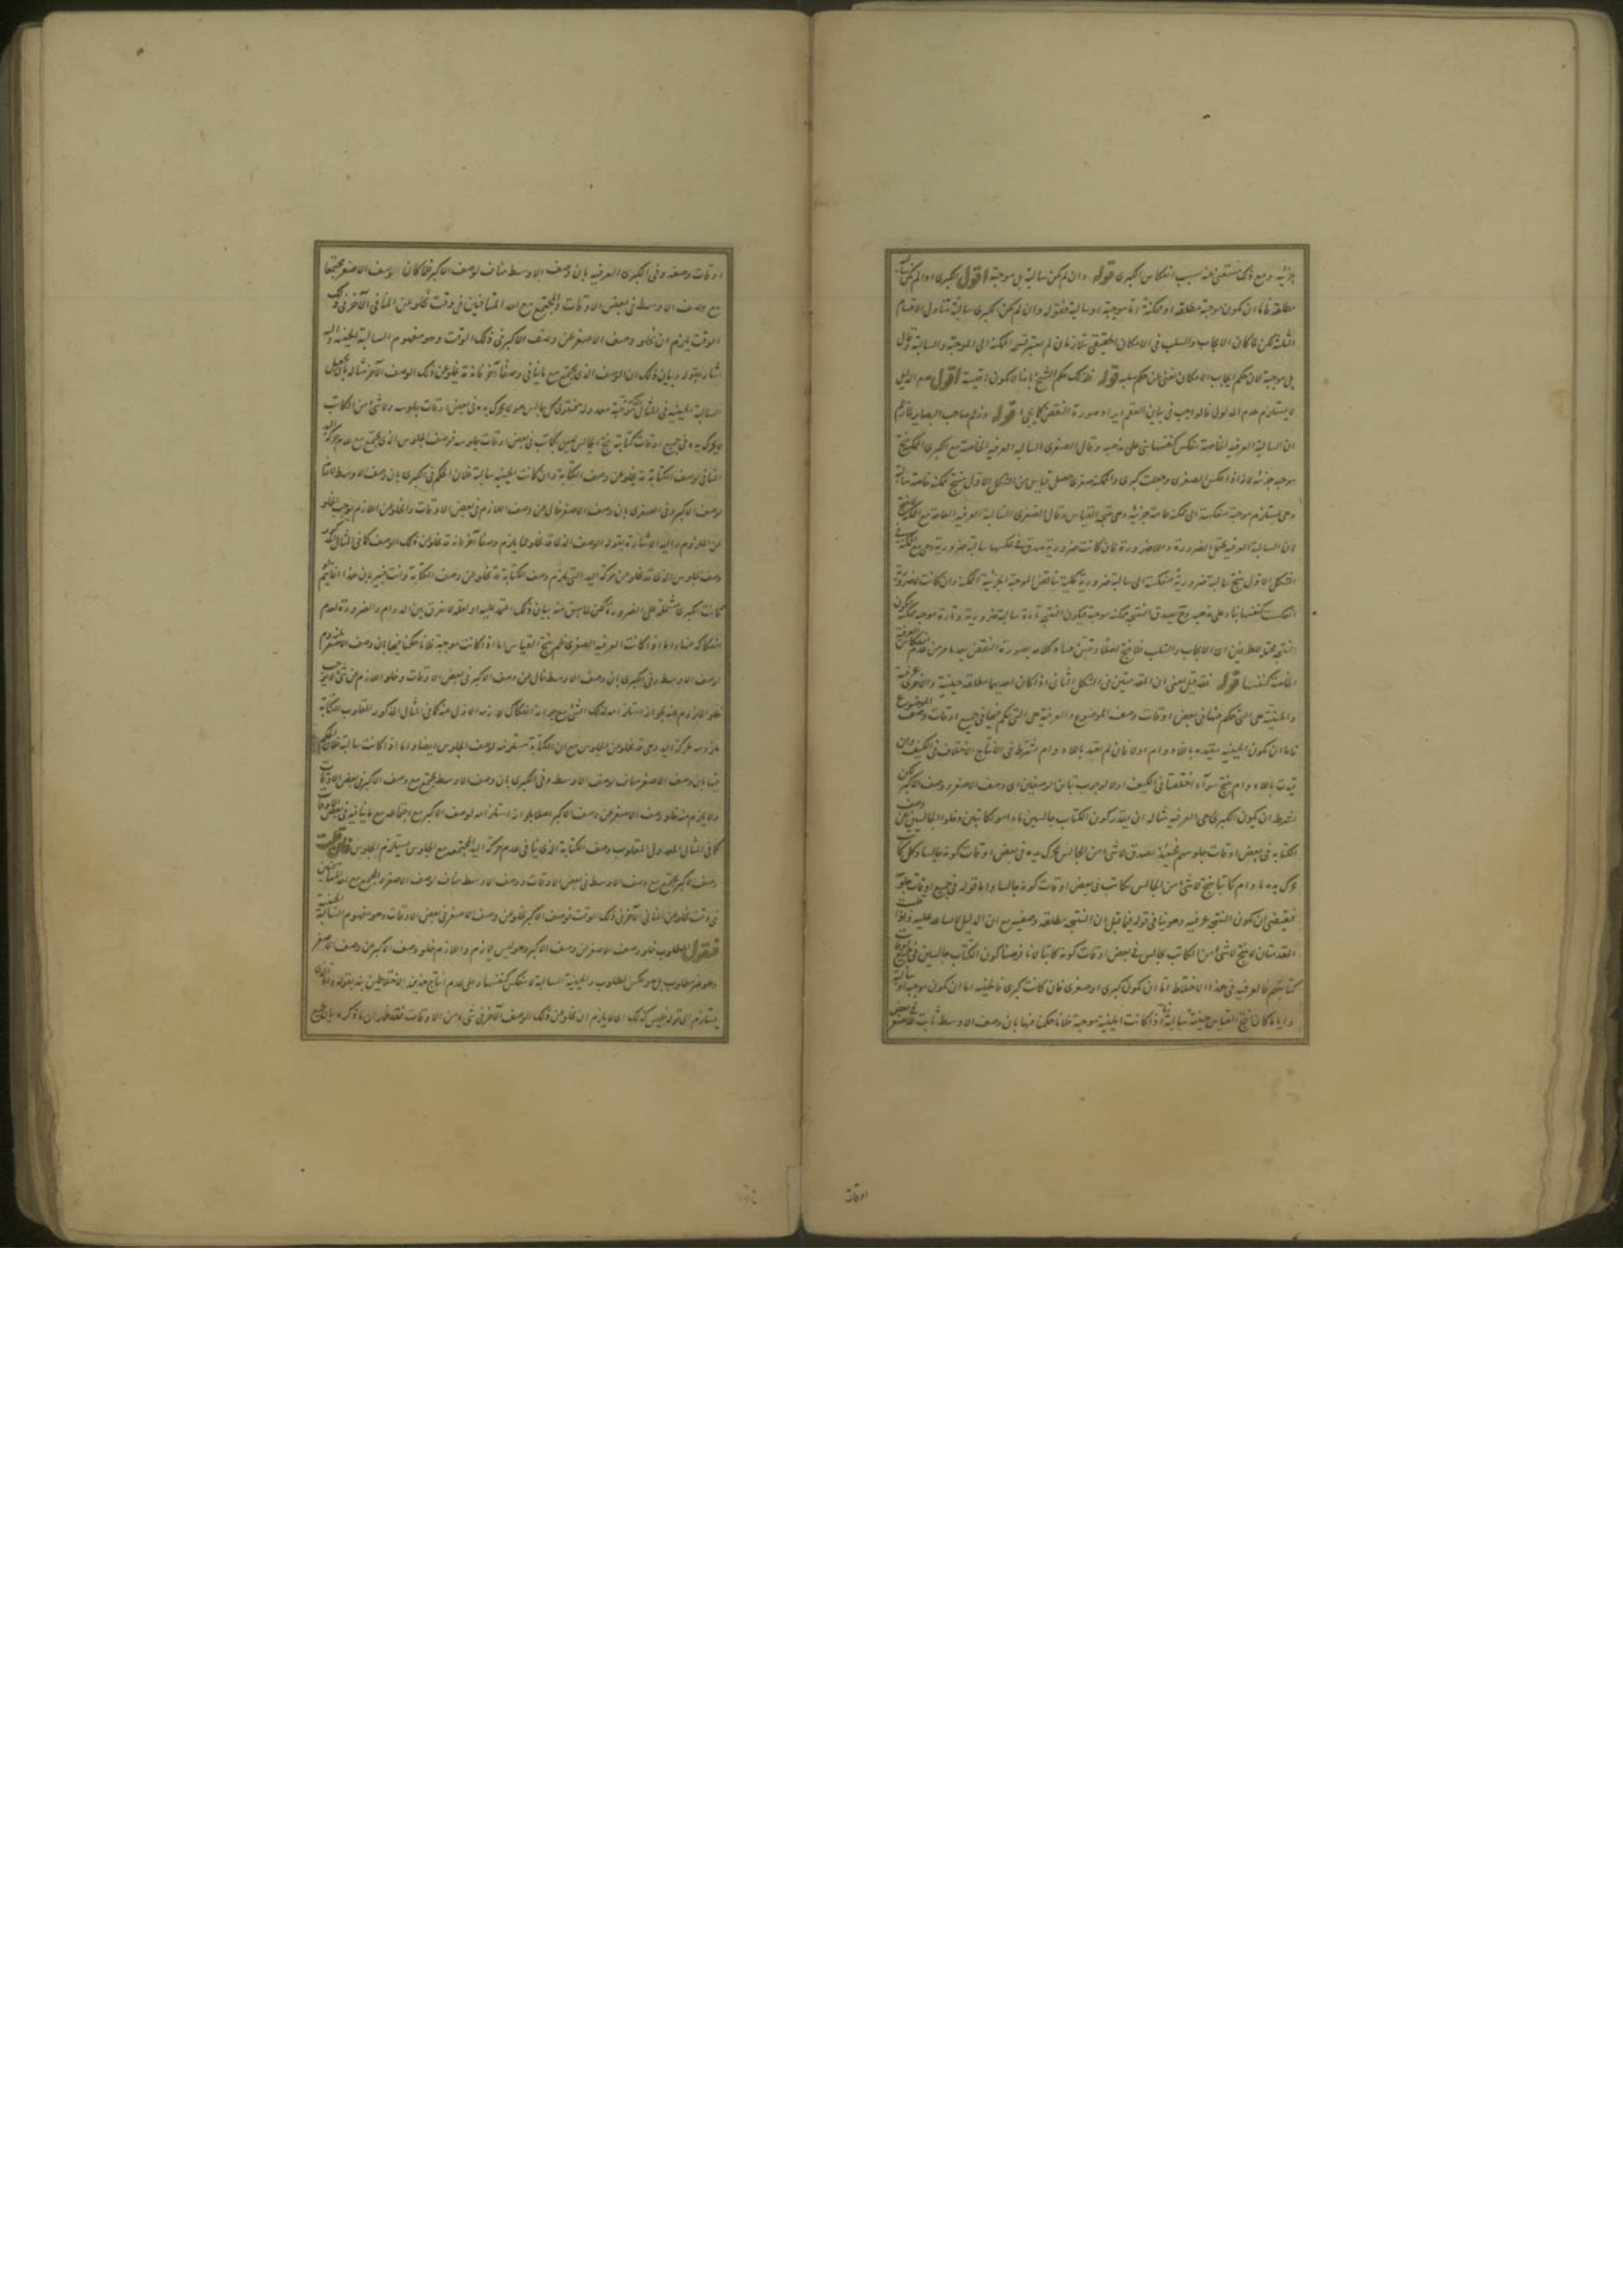 جزئية ومع ذلك مستغنى عنه بسبب انعكاس الكبرى قوله وان لم يكن سالبة بل موجبة اقول الكبرى اذا لم يكن سالبة
مطلقة فاما ان يكون موجبة مطلقة او ممكنة اما موجبة او سالبة فقوله وان لم يكن الكبرى سالبة تتناول الاقسام
الثلثة لكن لما كان الايجاب والسلب فى الامكان الحقيقى متلازمان لم يعتبر قسمة الممكنة الى الموجبة والسالبة وقال
بل موجبة لان حكم ايجاب الامكان يغنى عن حكم سلبه قوله فذلك حكم الشيخ بانها لا يكون اقيسة اقول عدم الدليل
لا يستلزم عدم المدلول فالواجب فى بيان العقم ايراد صورة النقض كما يجئ قوله وزعم صاحب البصاير
ان السالبة العرفية الخاصة تنعكس كنفسها بنى على مذهبه وقال الصغرى السالبة العرفية الخاصة مع الكبرى الممكنة ينتج
موجبة جزئية لانه اذا انعكس الصغرى وجعلت كبرى والممكنة صغرى حصل قياس من الشكل الاول ينتج ممكنة خاصة سالبة
وهى يستلزم موجبة منعكسة الى ممكنة عامة جزئية وهى نتيجة القياس وقال الصغرى السالبة العرفية العامة مع الممكنة
لان السالبة العرفية يحتمل الضرورة واللاضرورة فان كانت ضرورية صدق فى عكسها سالبة ضرورية وهى مع الممكنة فى
الشكل الاول ينتج سالبة ضرورية منعكسة الى سالبة ضرورية كلية يناقض الموجبة الجزئية الممكنة وان كانت لاضرورية
انعكست كنفسها بناء على مذهبه وح يصدق النتيجة ممكنة موجبة فيكون النتيجة تارة سالبة ضرورية وتارة موجبة ممكنة فيكون
النتيجة محتملا لطرفين اى الايجاب والسلب فلا ينتج اصلا
الخاصة كنفسها قوله فقد قيل يعنى ان المقدمتين فى الشكل الثانى اذا كان احديهما مطلقة حينية والاخرى عرفية
والحينية هى التى حكم فيها فى بعض اوقات وصف الموضوع والعرفية هى التى حكم فيها فى جميع اوقات وصف الموضوع
فاما ان يكون الحينية مقيدة باللادوام اولا فان لم تقيد باللادوام اشترط فى الانتاج الاختلاف فى الكيف وان
قيدت باللادوام ينتج سواء اختلفتا فى الكيف اولا لوجوب تباين الوصفين اى وصف الاصغر ووصف الاكبر لكن
بشرط ان يكون الكبرى هى العرفية مثاله ان يقدر كون الكتاب جالسين ما داموا كاتبين وخلو الجالسين عن وصف
الكتابة فى بعض اوقات جلوسهم فحينئذ يصدق لا شئ من الجالس يحرك يده فى بعض اوقات كونه جالسا وكل كاتب
يحرك يده ما دام كاتبا ينتج لا شئ من الجالس بكاتب فى بعض اوقات كونه جالسا واما قوله فى جميع اوقات جلوسه
فيقتضى ان يكون النتيجة عرفية وهو ينافى قوله فيما قبل ان النتيجة مطلقة وصفية مع ان الدليل لا يساعد عليه
المقدمتان لا ينتج لا شئ من الكاتب بجالس فى بعض اوقات كونه كاتبا لانا فرضنا كون الكتاب جالسين فى جميع اوقات
كتابتهم فالعرفية فى هذا الاختلاط اما ان يكون كبرى او صغرى فان كانت كبرى فالحينية اما ان يكون موجبة او سالبة
وايا ما كان ينتج القياس حينية سالبة اما اذا كانت الحينية موجبة فلانا حكمنا فيها بان وصف الاوسط ثابت للاصغر فى بعض
اوقات
اوقات وصفه وفى الكبرى العرفية بان وصف الاوسط مناف لوصف الاكبر فلما كان الوصف الاصغر مجتمعا
مع وصف الاوسط فى بعض الاوقات والمجتمع مع احد المتنافيين فى وقت يخلو عن المنافى الآخر فى ذلك
الوقت يلزم ان يخلو وصف الاصغر عن وصف الاكبر فى ذلك الوقت وهو مفهوم السالبة الحينية واليه
اشار بقوله وبيان ذلك ان الوصف الذى يجتمع مع ما ينافى وصفا آخر فانه قد يخلو عن ذلك الوصف الآخر مثاله
السالبة الحينية فى المثال موجبة معدولة فنقول كل جالس هو لا يحرك يده فى بعض اوقات جلوسه ولا شئ من الكاتب
لا يحرك يده فى جميع اوقات كتابته ينتج الجالس ليس بكاتب فى بعض اوقات جلوسه فوصف الجلوس الذى يجتمع مع عدم حركة اليد
المنافى لوصف الكتابة قد يخلو عن وصف الكتابة وان كانت الحينية سالبة فلان الحكم فى الكبرى بان وصف الاوسط لازم
لوصف الاكبر وفى الصغرى بان وصف الاصغر خال عن وصف اللازم فى بعض الاوقات والخلو عن اللازم يوجب الخلو
عن الملزوم واليه الاشارة بقوله الوصف الذى قد يخلو عما يلزم وصفا آخر فانه قد يخلو عن ذلك الوصف كما فى المثال المذكور
وصف الجلوس الذى قد يخلو عن حركة اليد التى يلزم وصف الكتابة قد يخلو عن وصف الكتابة وانت خبير بان هذا انما يتم
اذا كانت الكبرى مشتملة على الضرورة لكن لما سبق منه بيان ذلك اعتمد عليه او لعله لا يفرق بين الدوام والضرورة لعدم
انفكاكه عنها واما اذا كانت العرفية الصغرى فلم ينتج القياس اما اذا كانت موجبة فلانا حكمنا فيها بان وصف الاصغر ملزوم
لوصف الاوسط وفى الكبرى بان وصف الاوسط خال عن وصف الاكبر فى بعض الاوقات وخلو اللازم عن شئ لا يوجب
خلو الملزوم عنه لجواز استلزامه لذلك الشئ مع جواز انفكاك لازمه الاول عنه كما فى المثال المذكور المقلوب الكتابة
ملزومة لحركة اليد وهى قد يخلو عن الجلوس مع ان الكتابة مستلزمة لوصف الجلوس ايضا واما اذا كانت سالبة فلان الحكم
فيها بان وصف الاصغر مناف لوصف الاوسط وفى الكبرى بان وصف الاوسط يجتمع مع وصف الاكبر فى بعض الاوقات
ولا يلزم منه خلو وصف الاصغر عن وصف الاكبر اصلا لجواز استلزامه لوصف الاكبر مع اجتماعه مع ما ينافيه فى بعض الاوقات
كما فى المثال المعدول المقلوب وصف الكتابة الذى ينافى عدم حركة اليد المجتمعة مع الجلوس يستلزم الجلوس فان قلت
وصف الاكبر يجتمع مع وصف الاوسط فى بعض الاوقات ووصف الاوسط مناف لوصف الاصغر والمجتمع مع احد المتنافيين
فى وقت يخلو عن المنافى الآخر فى ذلك الوقت فوصف الاكبر يخلو عن وصف الاصغر فى بعض الاوقات وهو مفهوم السالبة الحينية
فنقول المطلوب خلو وصف الاصغر عن وصف الاكبر وهو ليس بلازم واللازم خلو وصف الاكبر عن وصف الاصغر
وهو غير مطلوب بل هو عكس المطلوب والحينية السالبة لا تنعكس كنفسها وعلى عدم انتاج هذين الاختلاطين نبه بقوله
يستلزم الى قوله فليس كذلك اى لا يلزم ان يخلو عن ذلك الوصف الآخر فى شئ من الاوقات فقد ظهر ان ما ذكره